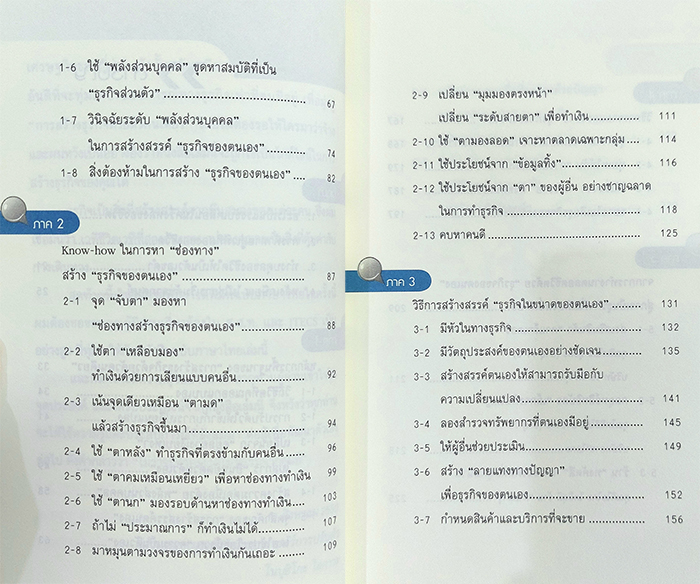 1-6 ใช้ "พลังส่วนบุคคล" ขุดหาสมบัติที่เป็น
"ธุรกิจส่วนตัว" 67
1-7 วินิจฉัยระดับ "พลังส่วนบุคคล"
ในการสร้างสรรค์ "ธุรกิจของตนเอง" 74
1-8 สิ่งต้องห้ามในการสร้าง "ธุรกิจของตนเอง" 82
ภาค 2
Know-how ในการหา "ช่องทาง"
สร้าง "ธุรกิจของตนเอง" 87
2-1 จุด "จับตา" มองหา
"ช่องทางสร้างธุรกิจของตนเอง" 88
2-2 ใช้ตา "เหลือบมอง"
ทำเงินด้วยการเลียนแบบคนอื่น 92
2-3 เน้นจุดเดียวเหมือน "ตามด"
แล้วสร้างธุรกิจขึ้นมา 94
2-4 ใช้ "ตาหลัง" ทำธุรกิจที่ตรงข้ามกับคนอื่น 96
2-5 ใช้ "ตาคมเหมือนเหยี่ยว" เพื่อหาช่องทางทำเงิน 99
2-6 ใช้ "ตานก" มองรอบด้านหาช่องทางทำเงิน 103
2-7 ถ้าไม่ "ประมาณการ" ก็ทำเงินไม่ได้ 107
2-8 มาหมุนตามวงจรของการทำเงินกันเถอะ 109
2-9 เปลี่ยน "มุมมองตรงหน้า"
เปลี่ยน "ระดับสายตา" เพื่อทำเงิน 111
2-10 ใช้ "ตามองลอด" เจาะหาตลาดเฉพาะกลุ่ม 114
2-11 ใช้ประโยชน์จาก "ข้อมูลทิ้ง" 116
2-12 ใช้ประโยชน์จาก "ตา" ของผู้อื่น อย่างชาญฉลาด
ในการทำธุรกิจ 118
2-13 คบหาคนดี 125
ภาค 3
วิธีการสร้างสรรค์ "ธุรกิจในขนาดของตนเอง" 131
3-1 มีหัวในทางธุรกิจ 132
3-2 มีวัตถุประสงค์ของตนเองอย่างชัดเจน 135
3-3 สร้างสรรค์ตนเองให้สามารถรับมือกับ
ความเปลี่ยนแปลง 141
3-4 ลองสำรวจทรัพยากรที่ตนเองมีอยู่ 145
3-5 ให้ผู้อื่นช่วยประเมิน 149
3-6 สร้าง "ลายแทงทางปัญญา"
เพื่อธุรกิจของตนเอง 152
3-7 กำหนดสินค้าและบริการที่จะขาย 156